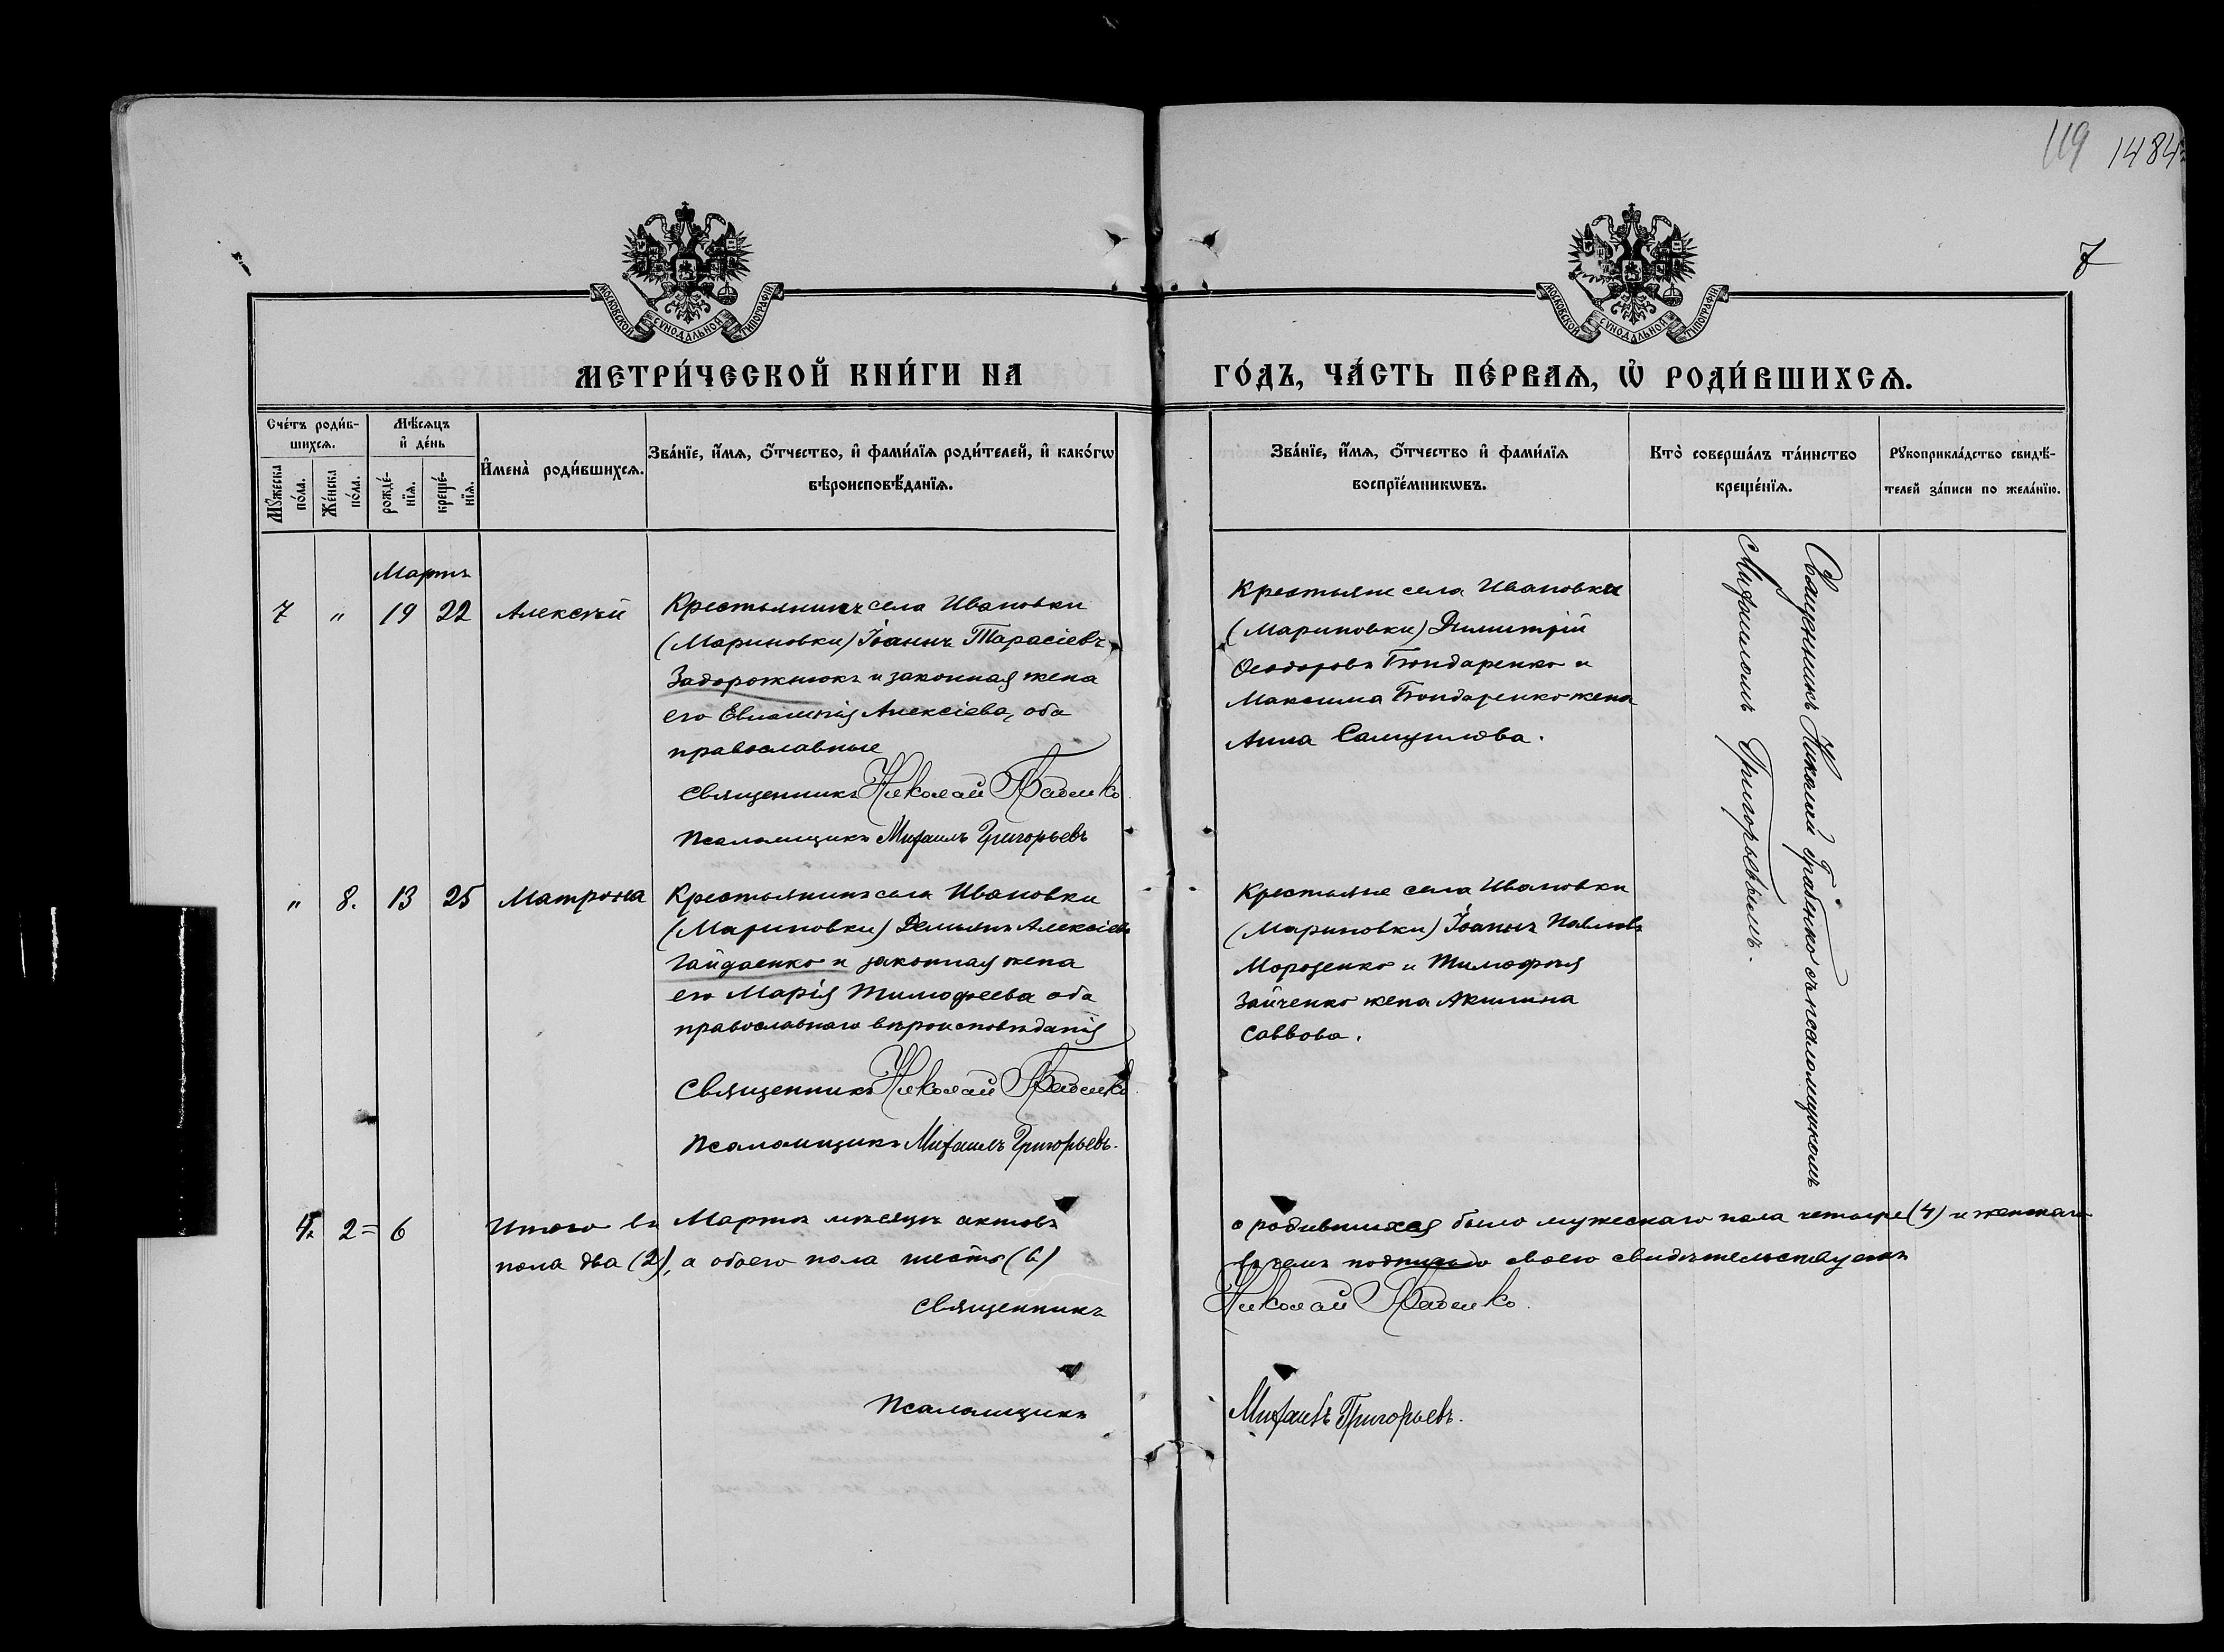 119 1484
7
МОСКОВСКОЙ СѴНОДАЛЬНОЙ ТИПОГРАФІИ
МОСКОВСКОЙ СѴНОДАЛЬНОЙ ТИПОГРАФІИ
МЕТРИ́ЧЕСКОЙ КНИ́ГИ НА
ГО́ДЪ, ЧА́СТЬ ПЕ́РВАѦ, Ѡ҆ РОДИ́ВШИХСѦ.
Сче́тъ роди́в-
шихсѧ.
Мꙋ́жеска по́ла.
Же́нска по́ла.
Мѣ́сѧцъ
и҆ де́нь
рожде́-
нїѧ.
креще́-
нїѧ.
И҆мена̀ роди́вшихсѧ.
Зва́нїе, и҆́мѧ, ѻ҆́тчество, и҆ фами́лїѧ роди́телей, и҆ како́гѡ
вѣроисповѣ́данїѧ.
Зва́нїе, и҆́мѧ, ѻ҆́тчество и҆ фами́лїѧ
воспрїе́мникѡвъ.
Кто̀ соверша́лъ та́инство
креще́нїѧ.
Рꙋкоприкла́дство свидѣ́-
телей за́писи по жела́нїю.
Мартъ
7 " 19 22 Алексѣй
Крестьянинъ села Ивановки
(Мариновки) Іоаннъ Тарасіевъ
Задорожнюкъ и законная жена
его Евлампія Алексіева, оба
православные
Священникъ Николай
Псаломщикъ Михаилъ Григорьевъ
Крестьяне села Ивановки
(Мариновки) Димитрій
Ѳеодоровъ Бондаренко и
Максима Бондаренко жена
Анна Самуилова.
Священникъ Николай съ псаломщикомъ
Михаиломъ Григорьевымъ.
" 8. 13 25 Матрона
Крестьянинъ села Ивановки
(Мариновки) Демьянъ Алексіевъ
Гайдаенко и законная жена
его Марія Тимофеева оба
православнаго вѣроисповѣданія
Священникъ Николай
Псаломщикъ Михаилъ Григорьевъ.
Крестьяне села Ивановки
(Мариновки) Іоаннъ Павловъ
Морозенко и Тимофея
Зайченко жена Акилина
Саввова.
4. 2 = 6 Итого въ Мартѣ мѣсяцѣ актовъ о родившихся было мужескаго пола четыре (4) и женскаго
пола два (2), а обоего пола шесть (6) въ чемъ подписью своею свидѣтельствуемъ
Священникъ Николай
Псаломщикъ Михаилъ Григорьевъ.